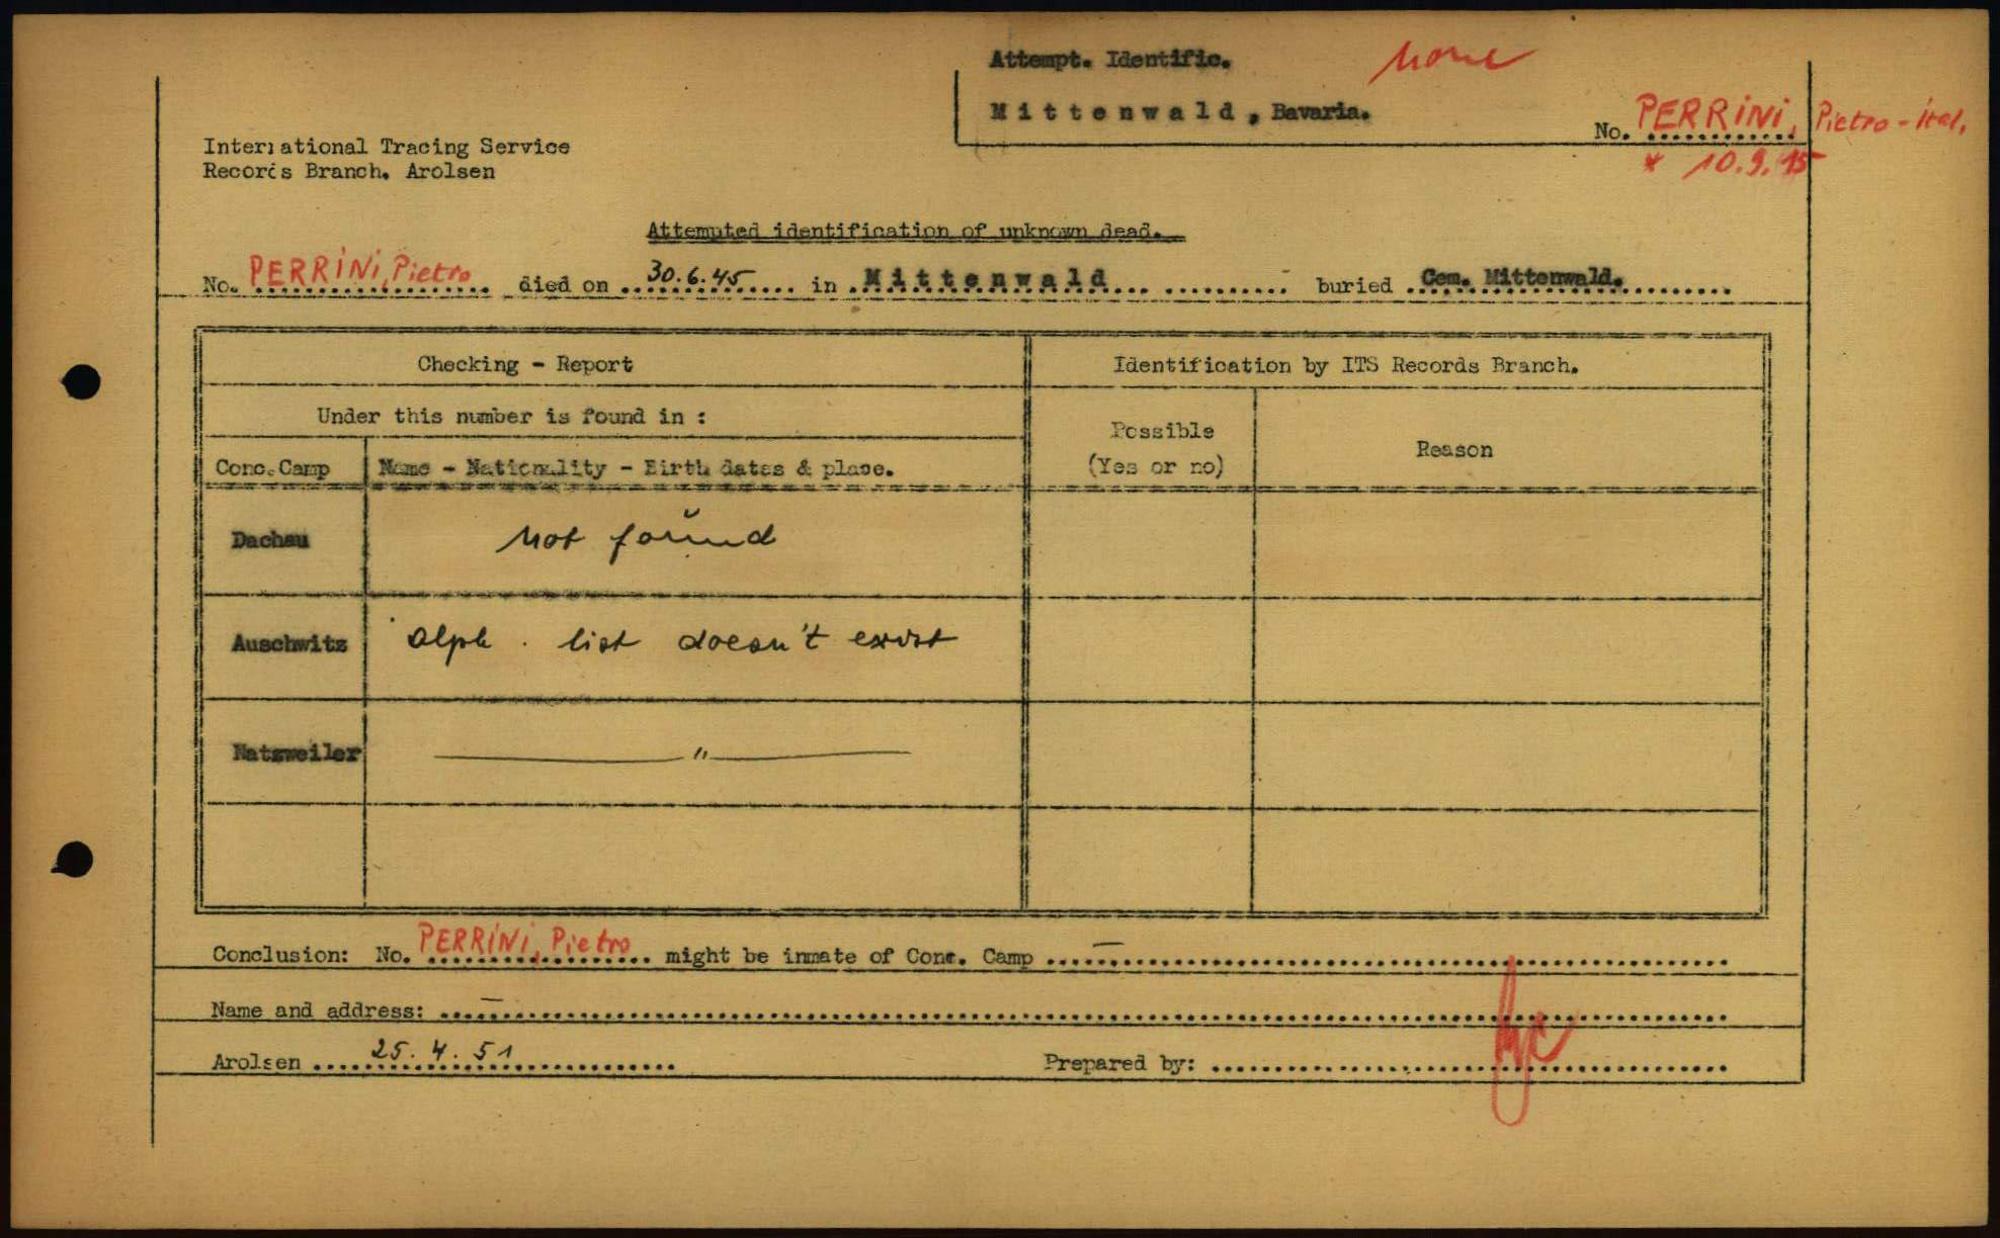 Attempt. Identific. None
Mittenwald, Bavaria.
No. PERRINI, Pietro - ital.
* 10.9.15
International Tracing Service
Records Branch. Arolsen
Attemuted identification of unknown dead.
No. PERRINI, Pietro died on 30.6.45 in Mittenwald buried Cem. Mittenwald.
Checking - Report Identification by ITS Records Branch.
Under this number is found in :
Possible
(Yes or no)
Reason
Conc. Camp Name - Nationality - Birth dates & place.
Dachau not found
Auschwitz alph. list doesn't exist
Natzweiler — " —
Conclusion: No. PERRINI, Pietro might be inmate of Conc. Camp —
Name and address: —
Arolsen 25.4.51 Prepared by: